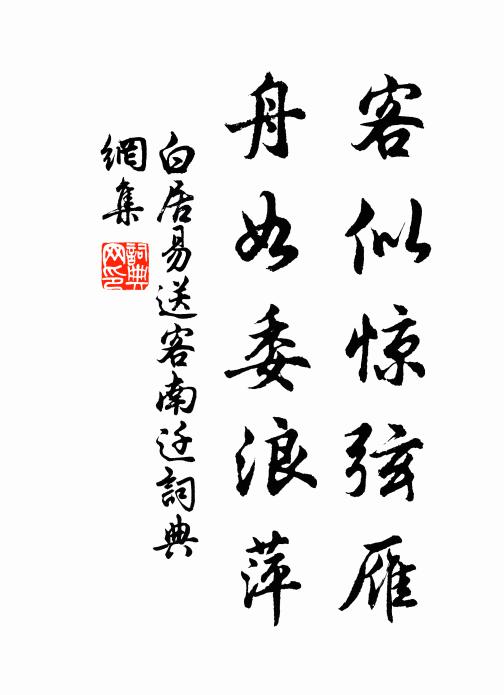 客似惊弦雁
舟如委浪萍
白居易送客南迁詞典
網集
詞典
网印